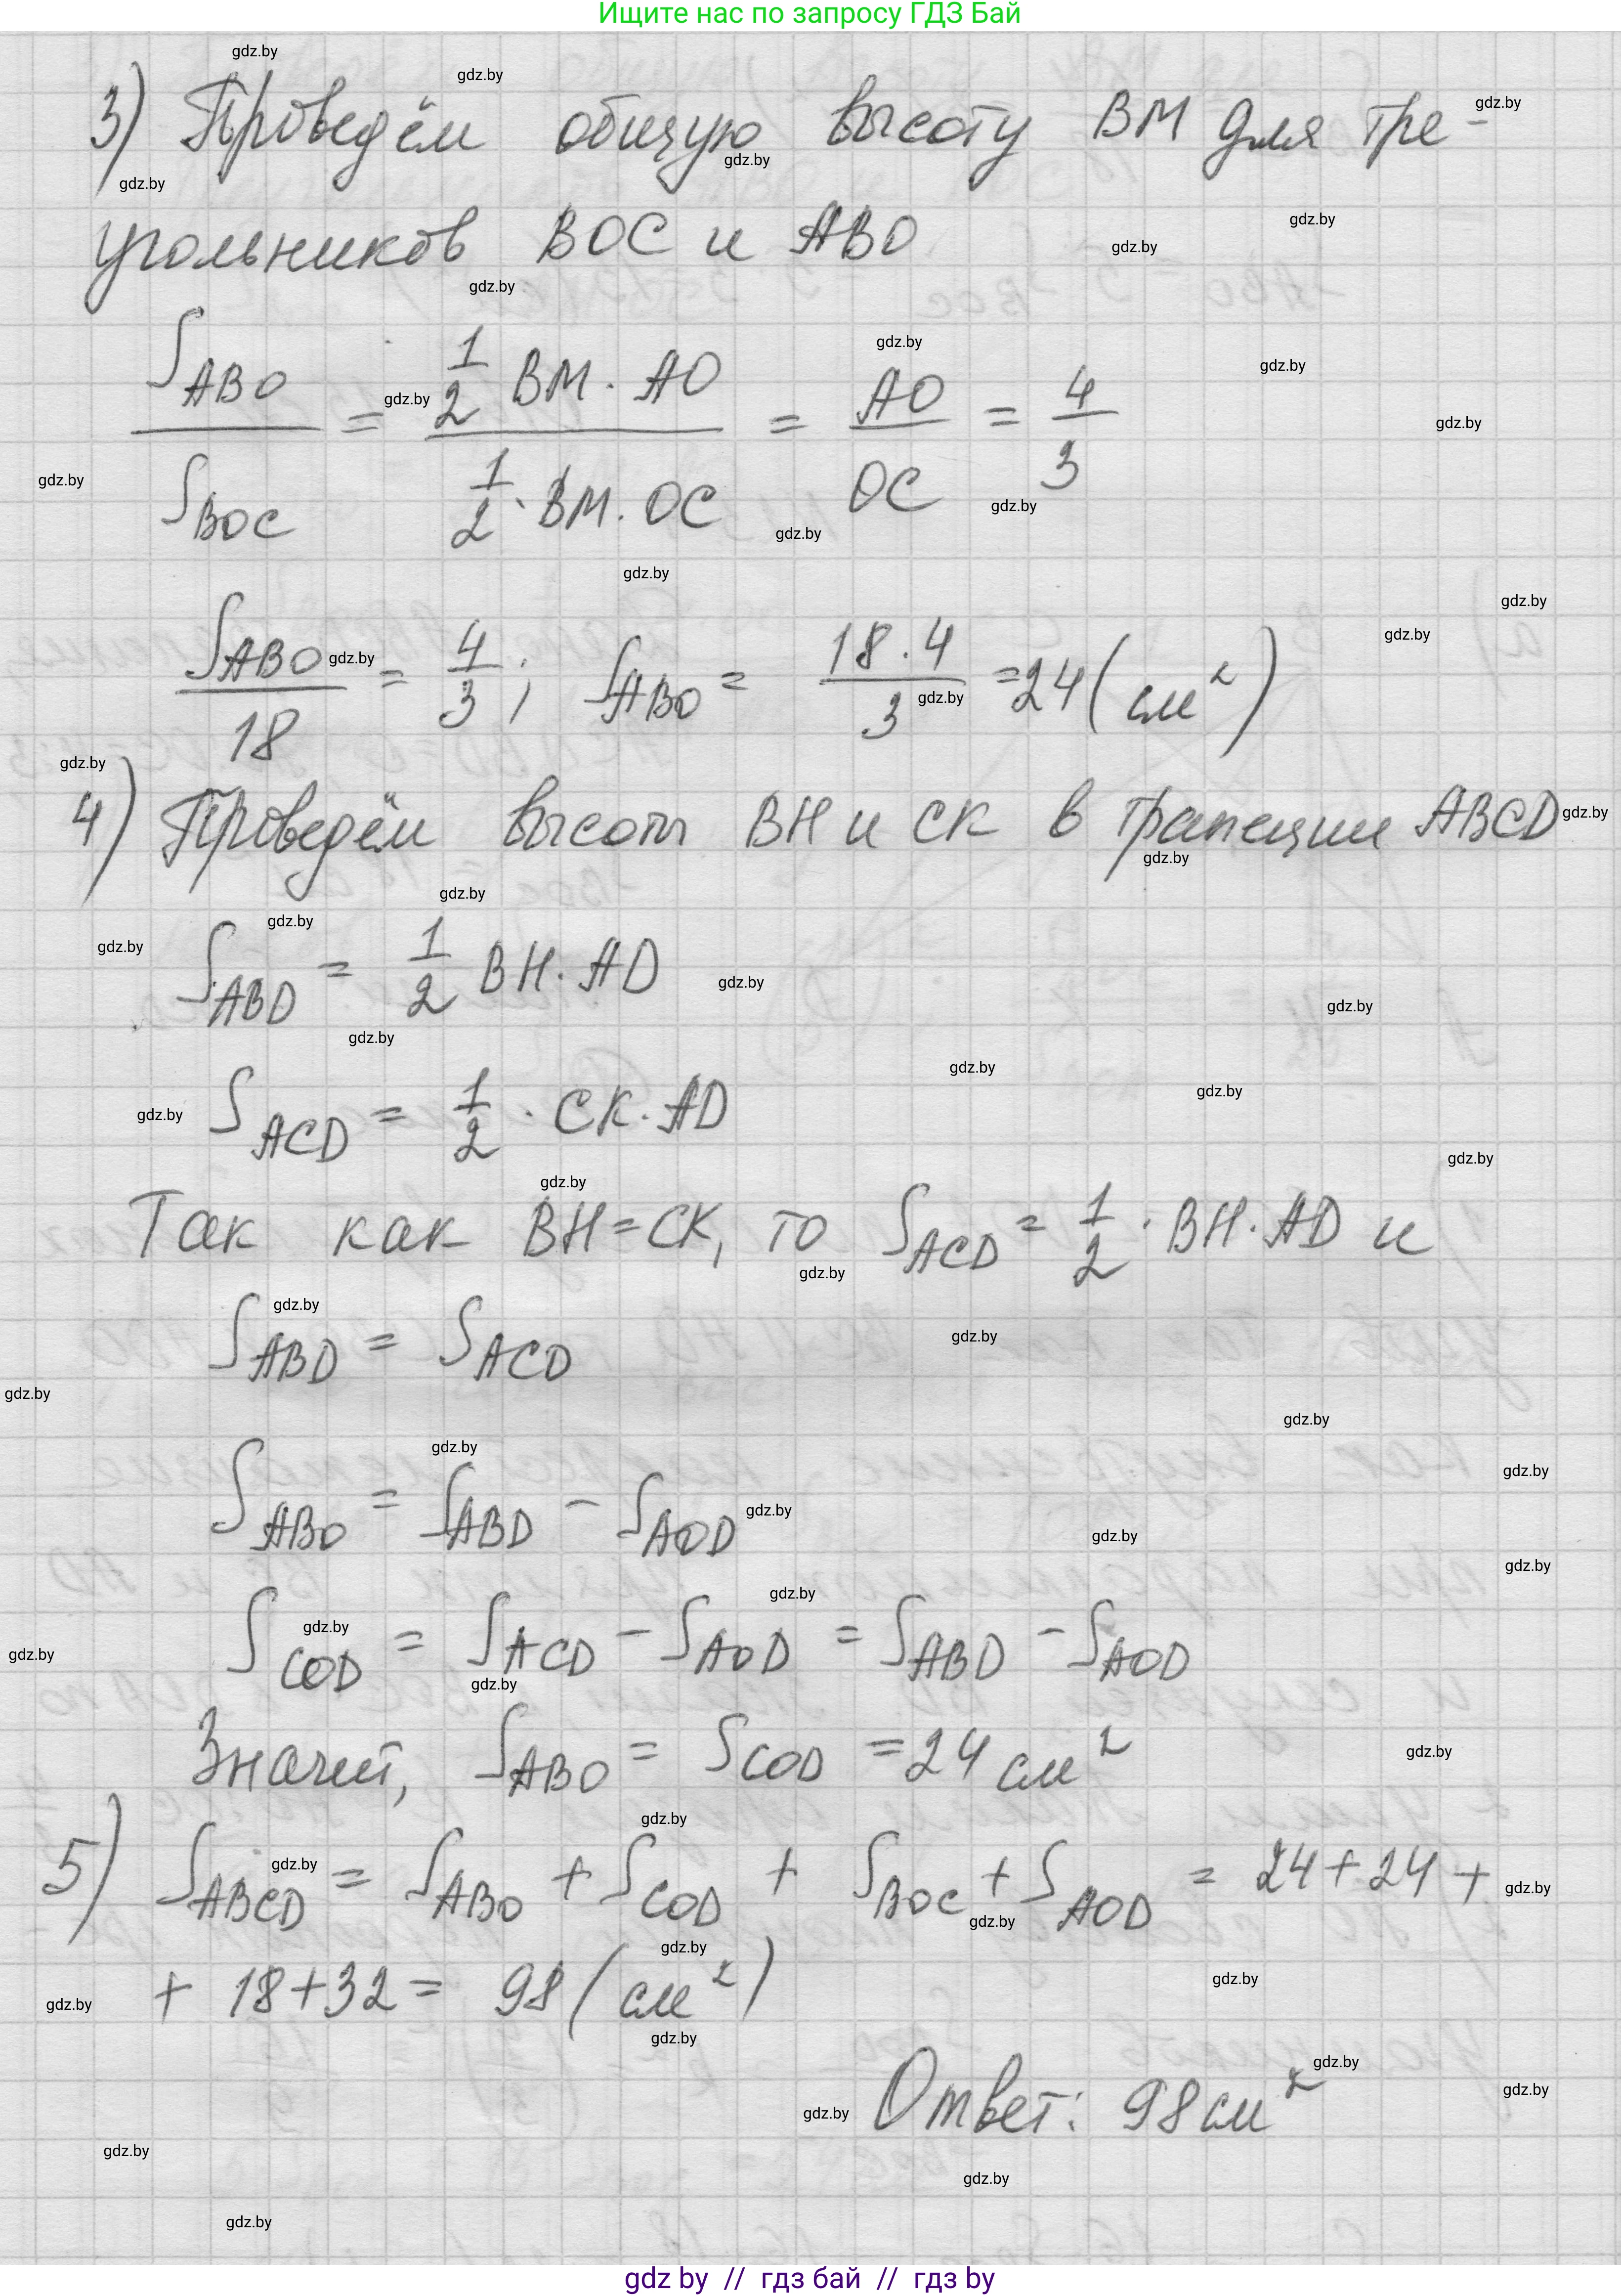 Ищите нас по запросу ГДЗ Бай
3) Проведём общую высоту BM для тре-
угольников BOC и ABO
S_ABO / S_BOC = (1/2 BM · AO) / (1/2 · BM · OC) = AO / OC = 4/3
S_ABO / 18 = 4/3 ; S_ABO = 18 · 4 / 3 = 24 (см²)
4) Проведём высоты BH и CK в трапеции ABCD
S_ABD = 1/2 BH · AD
S_ACD = 1/2 · CK · AD
Так как BH = CK, то S_ACD = 1/2 · BH · AD и
S_ABD = S_ACD
S_ABO = S_ABD − S_AOD
S_COD = S_ACD − S_AOD = S_ABD − S_AOD
Значит, S_ABO = S_COD = 24 см²
5) S_ABCD = S_ABO + S_COD + S_BOC + S_AOD = 24 + 24 +
+ 18 + 32 = 98 (см²)
Ответ: 98 см²
gdz by // гдз бай // гдз by